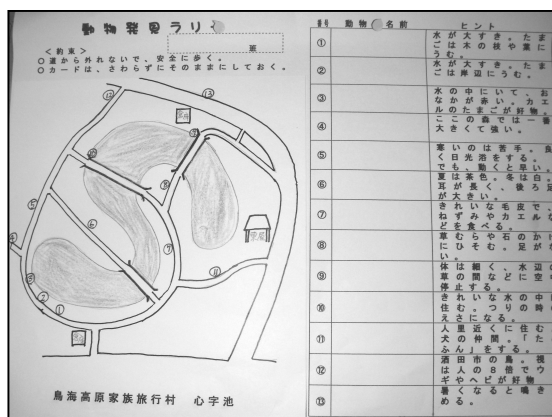 動物発見ラリー
班
＜約束＞
○ 道から外れないで、安全に歩く。
○ カードは、さわらずにそのままにしておく。
⑫
⑬
⑤
⑥
⑦
⑧
④
③
②
①
⑪
鳥海高原家族旅行村 心字池
番号 動物 名前 ヒント
① 水が大すき。たま
ごは木の枝や葉に
うむ。
② 水が大すき。たま
ごは岸辺にうむ。
③ 水の中にいて、お
なかが赤い。カエ
ルのたまごが好物。
④ ここの森では一番
大きくて強い。
⑤ 寒いのは苦手。良
く日光浴をする。
でも、動くと早い。
⑥ 夏は茶色。冬は白。
耳が長く、後ろ足
が大きい。
⑦ きれいな毛皮で、
ねずみやカエルな
どを食べる。
⑧ 草むらや石のかげ
にひそむ。足がな
い。
⑨ 体は細く、水辺の
草の間などに空中
停止する。
⑩ きれいな水の中に
住む。つりの時の
えさになる。
⑪ 人里近くに住む
犬の仲間。「た
ふん」をする。
⑫ 酒田市の鳥。視
は人の8倍でウ
ギやヘビが好物
⑬ 暑くなると鳴き
める。